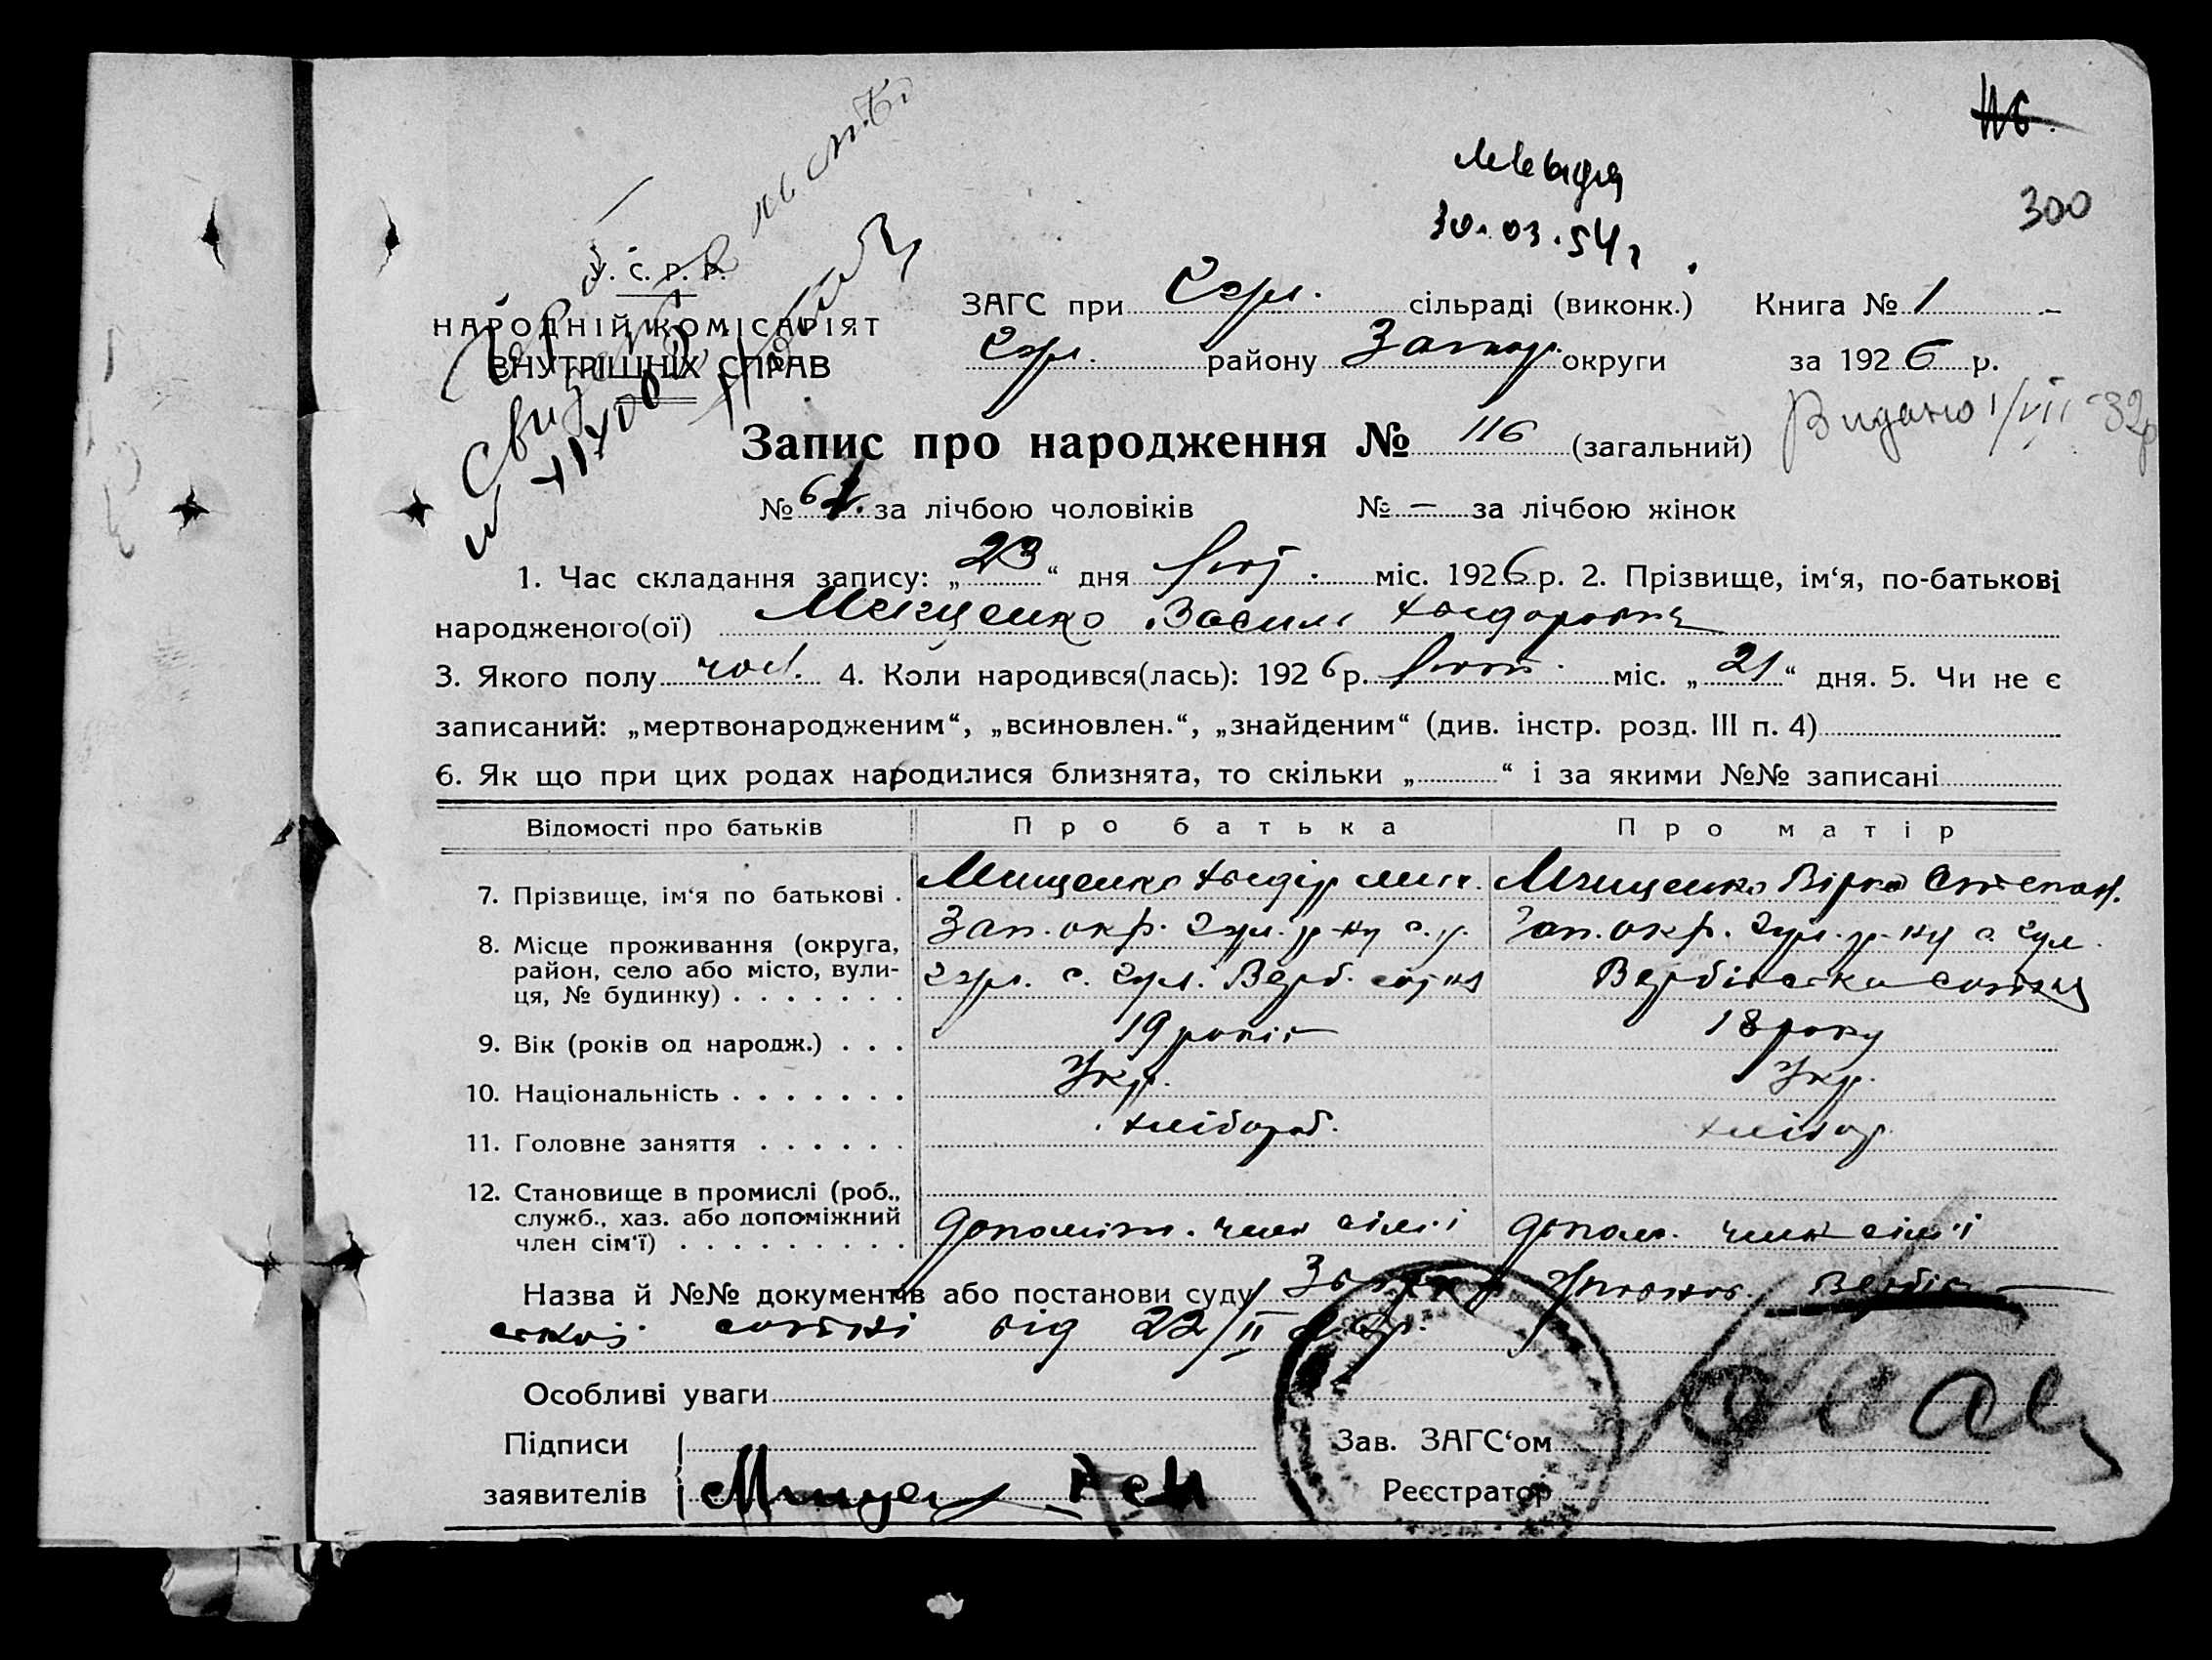 116.
30.03.54г.
300
У. С. Р. Р.
НАРОДНІЙ КОМІСАРІЯТ
ВНУТРІШНІХ СПРАВ
ЗАГС при Гул. сільраді (виконк.) Книга № 1
Гул. району Запор. округи за 1926 р.
Видано 1/VII-32р
Запис про народження № 116 (загальний)
№ 61. за лічбою чоловіків № — за лічбою жінок
1. Час складання запису: „23“ дня лют. міс. 1926 р. 2. Прізвище, ім‘я, по-батькові
народженого(ої) Мищенко Василь Хведорович
3. Якого полу чол. 4. Коли народився(лась): 1926 р. лют. міс. „21“ дня. 5. Чи не є
записаний: „мертвонародженим“, „всиновлен.“, „знайденим“ (див. інстр. розд. III п. 4)
6. Як що при цих родах народилися близнята, то скільки „ “ і за якими №№ записані
Відомості про батьків Про батька Про матір
7. Прізвище, ім‘я по батькові . Мищенко Хведір Мищенко Вірка Степан.
8. Місце проживання (округа, район, село або місто, вулиця, № будинку) . . . . . . .
Зап. окр. Гул. р-ну с. р. Зап. окр. Гул. р-ну с. Гул.
Гул. с. Гул. Верб. сотня Вербівська сотня
9. Вік (років од народж.) . . . 19 років 18 року
10. Національність . . . . . . . Укр. Укр.
11. Головне заняття . . . . . . хлібороб. хлібор.
12. Становище в промислі (роб., служб., хаз. або допоміжний член сім‘ї) . . . . . . . . .
допоміжн. член сім'ї допом. член сім'ї
Назва й №№ документів або постанови суду Вербів-
ської сотні від 22/II 26р.
Особливі уваги
Підписи
заявителів
Зав. ЗАГС‘ом
Реєстратор